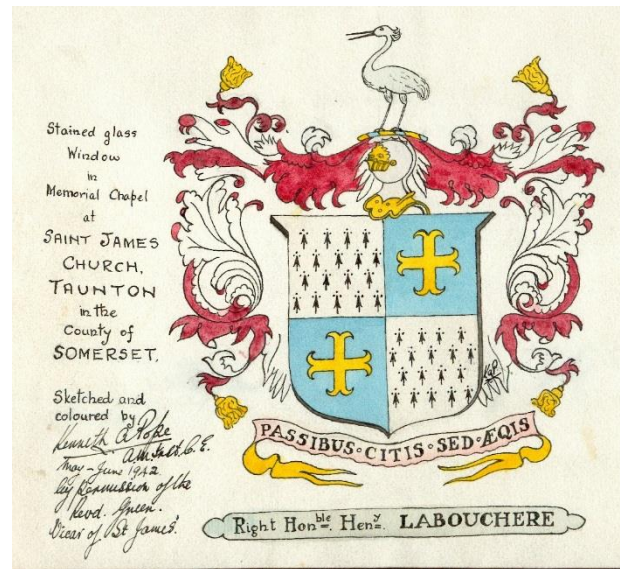 Stained glass
Window
in
Memorial Chapel
at
SAINT JAMES
CHURCH,
TAUNTON
in the
County of
SOMERSET.
Sketched and
coloured by
Kenneth G Pope
A.M.Inst.C.E.
May – June 1942
by permission of the
Revd. Green.
Vicar of St James'.
KGP
PASSIBUS · CITIS · SED · ÆQIS
Right Honble. Heny. LABOUCHERE